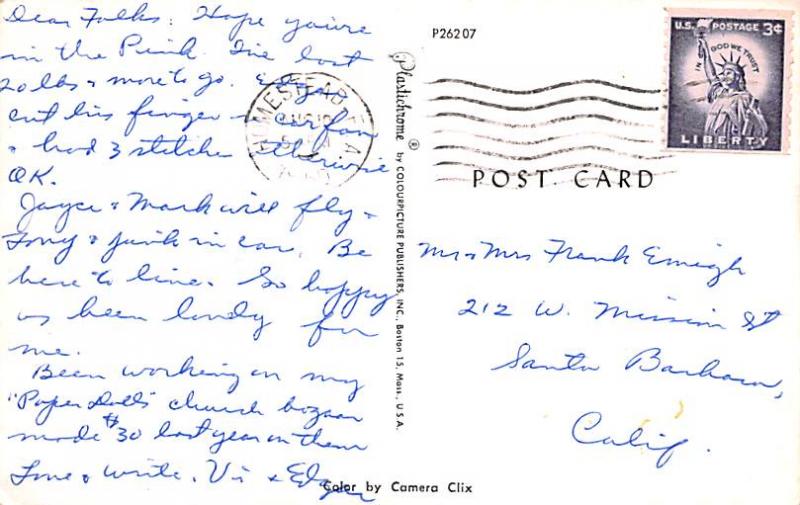 Dear Folks: Hope you're
in the Pink. I've lost
20 lbs & more to go. Edgar
cut his finger on car fan
& had 3 stitches otherwise
OK.
Joyce & Mark will fly &
Tony & junk in car. Be
here to live. So happy
as been lonely for
me.
Been working on my
"Paper Dolls" church bazaar
made $30 last year on them
Love & write. Vi & Edgar
P26207
Plastichrome ® by COLOURPICTURE PUBLISHERS, INC., Boston 15, Mass., U.S.A.
HOMESTEAD, FLA.
U.S. POSTAGE 3¢
IN GOD WE TRUST
LIBERTY
POST CARD
Mr & Mrs Frank Emigh
212 W. Mission St
Santa Barbara,
Calif.
Color by Camera Clix